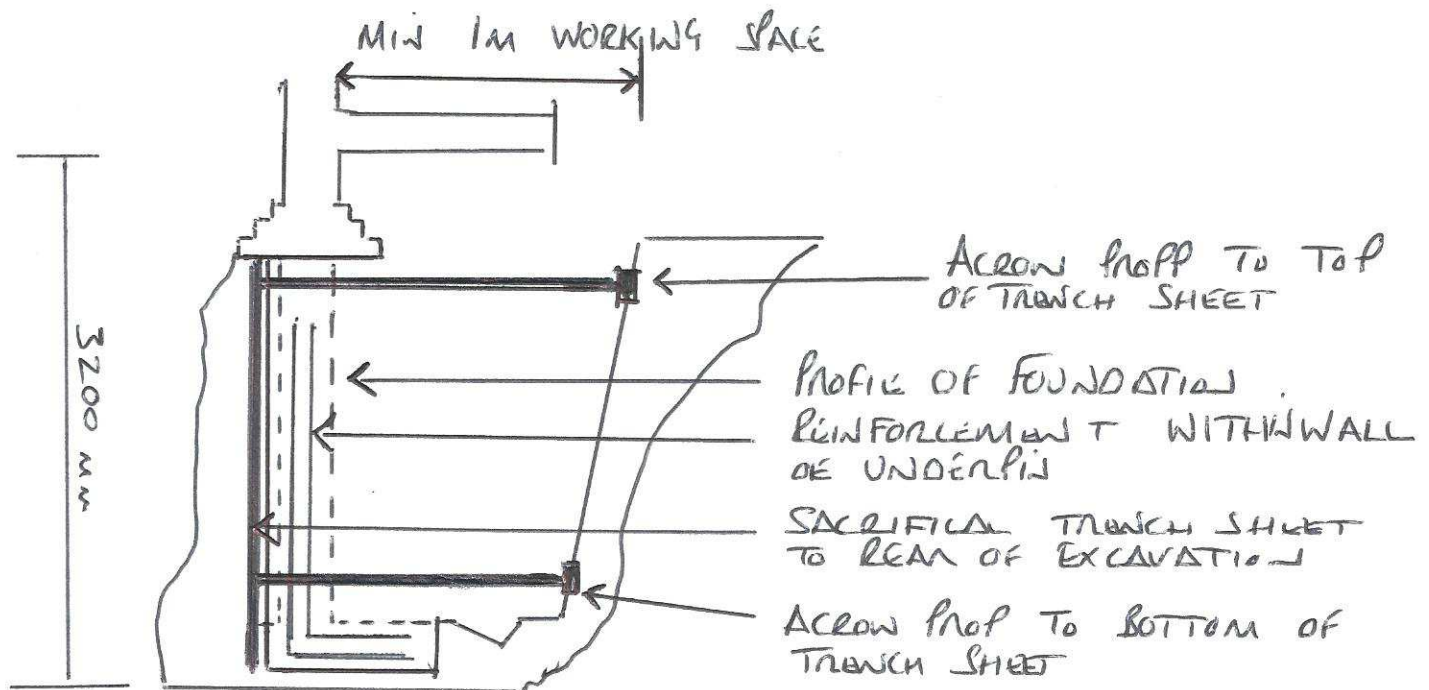 MIN 1M WORKING SPACE
3200 MM
ACROW PROPP TO TOP
OF TRENCH SHEET
PROFILE OF FOUNDATION.
REINFORCEMENT WITHIN WALL
OF UNDERPIN
SACRIFICAL TRENCH SHEET
TO REAR OF EXCAVATION
ACROW PROP TO BOTTOM OF
TRENCH SHEET